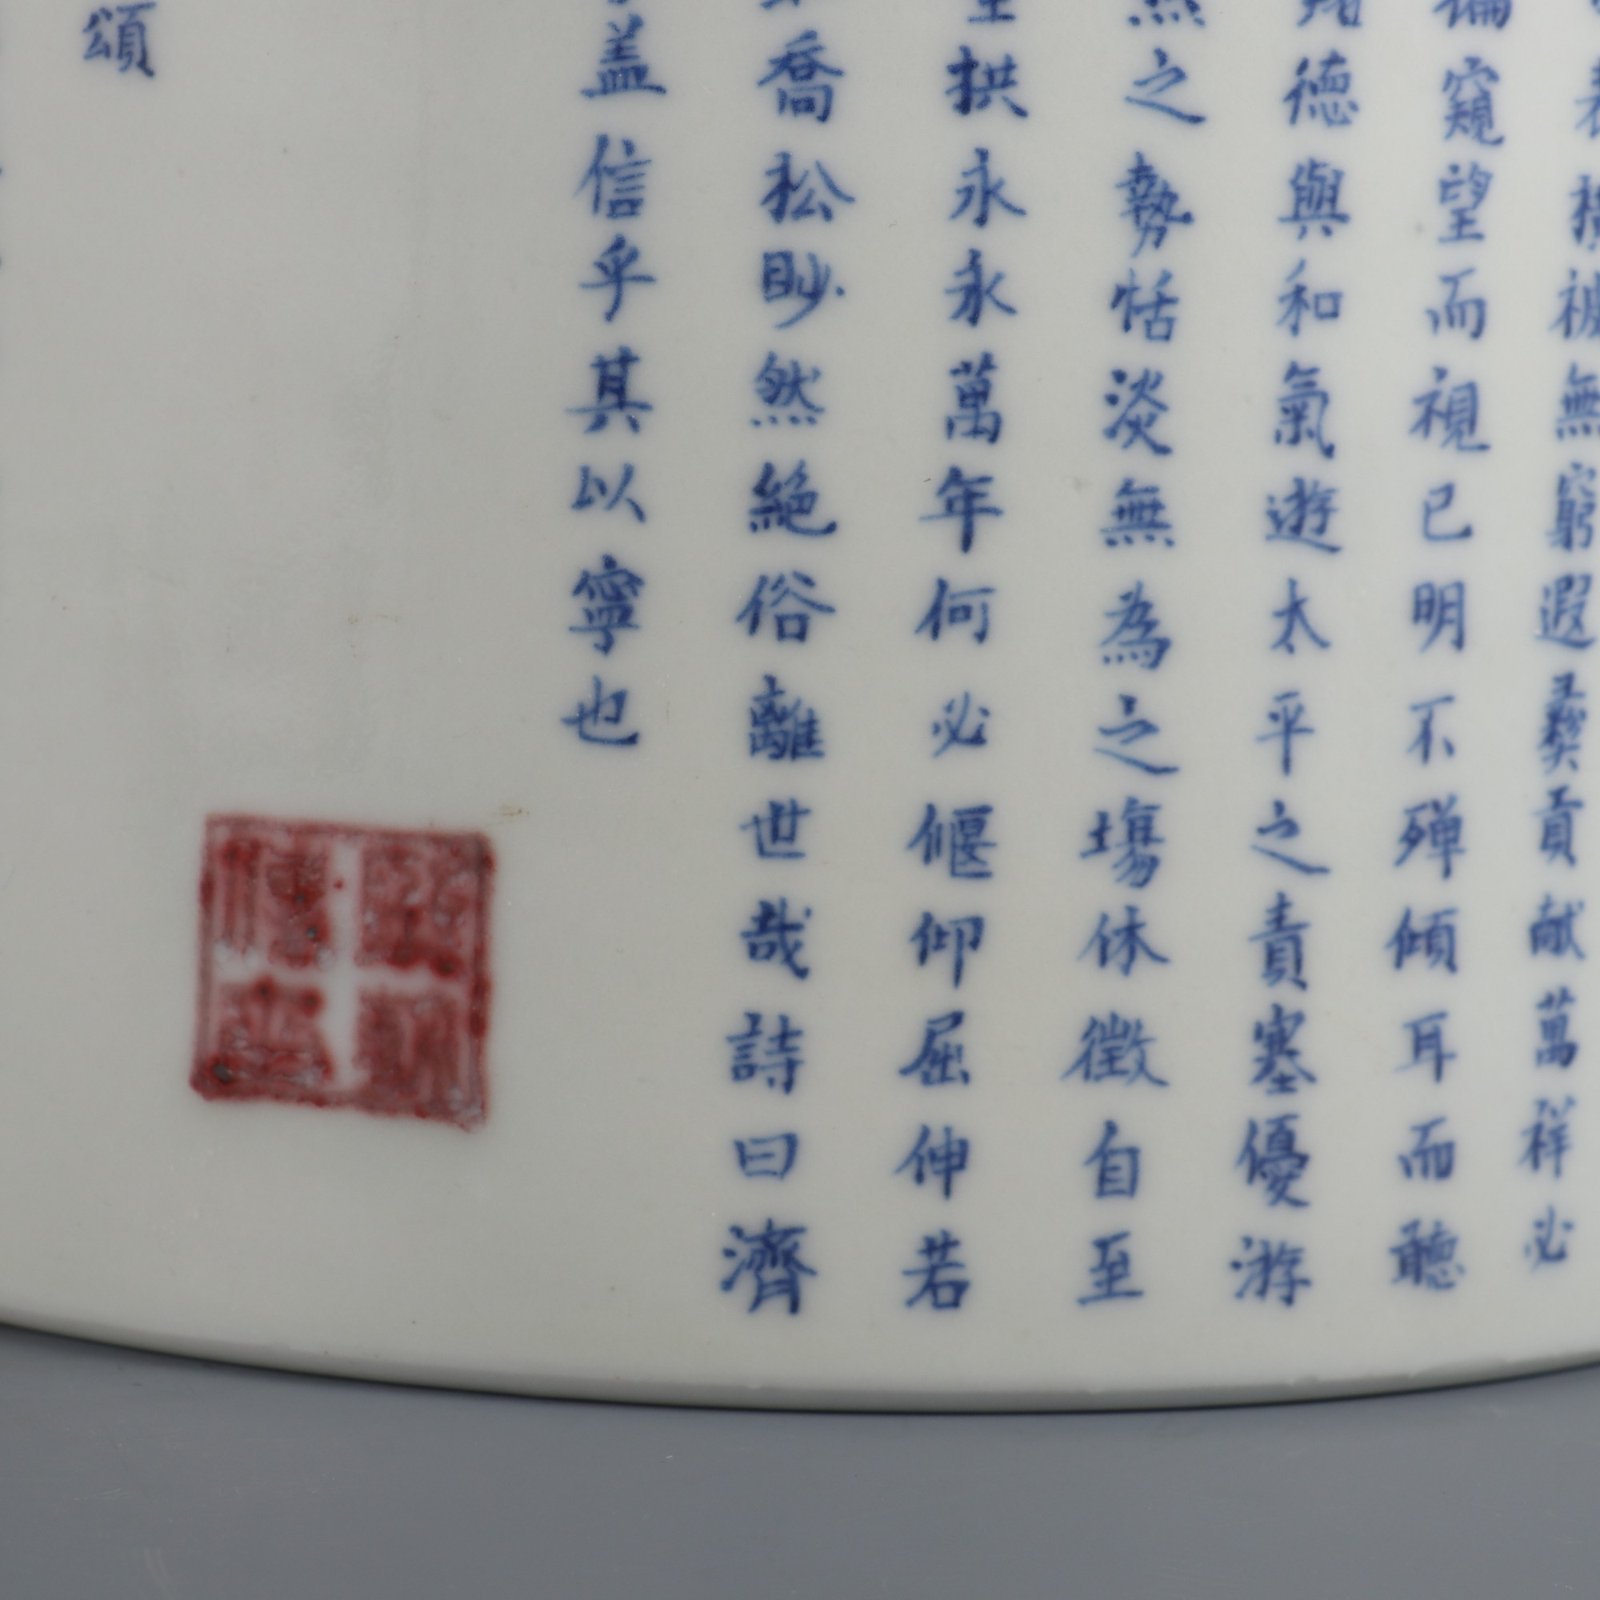 表橫被無窮遐彝貢献萬祥必
窺望而視已明不殫傾耳而聽
德與和氣遊太平之責塞優游
然之勢恬淡無為之塲休徵自至
拱永永萬年何必偃仰屈伸若
喬松眇然絶俗離世哉詩曰濟
蓋信乎其以寧也
頌